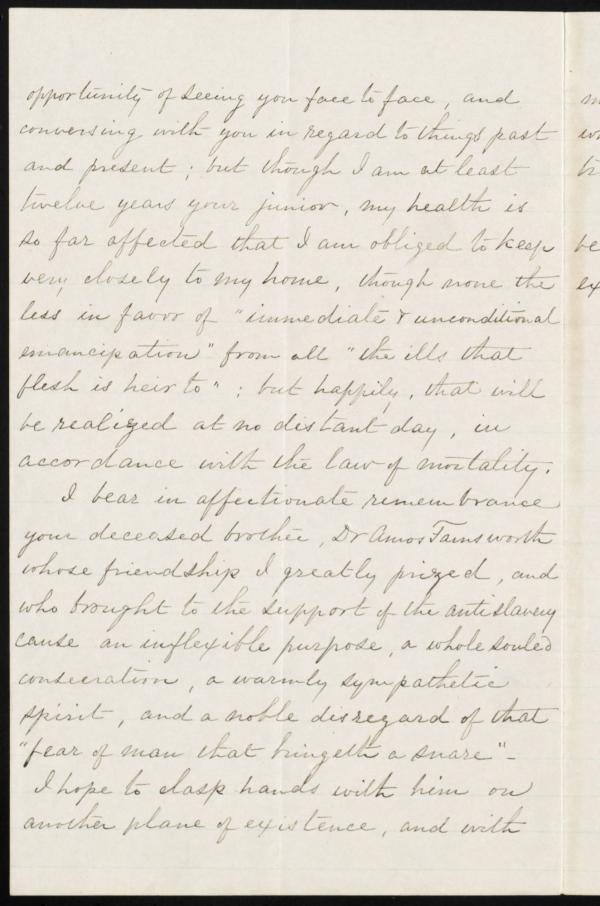 opportunity of seeing you face to face, and
conversing with you in regard to things past
and present; but though I am at least
twelve years your junior, my health is
so far affected that I am obliged to keep
very closely to my home, though none the
less in favor of "immediate & unconditional
emancipation" from all "the ills that
flesh is heir to"; but happily, that will
be realized at no distant day, in
accordance with the law of mortality.
I bear in affectionate remembrance
your deceased brother, Dr Amos Farnsworth
whose friendship I greatly prized, and
who brought to the support of the antislavery
cause an inflexible purpose, a whole souled
consecration, a warmly sympathetic
spirit, and a noble disregard of that
"fear of man that bringeth a snare" -
I hope to clasp hands with him on
another plane of existence, and with
be
ex